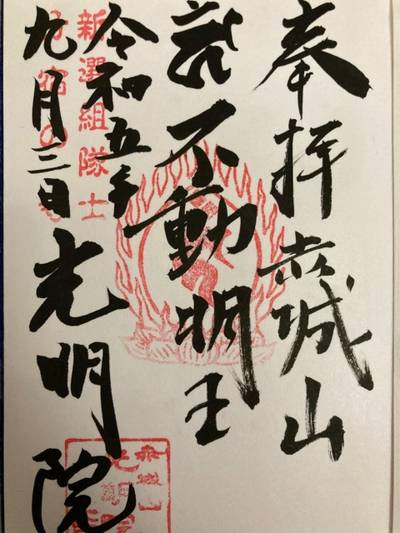 奉拝赤城山
不動明王
令和五年
九月三日 光明院
新選組隊士
分宿の寺
赤城山
光明院